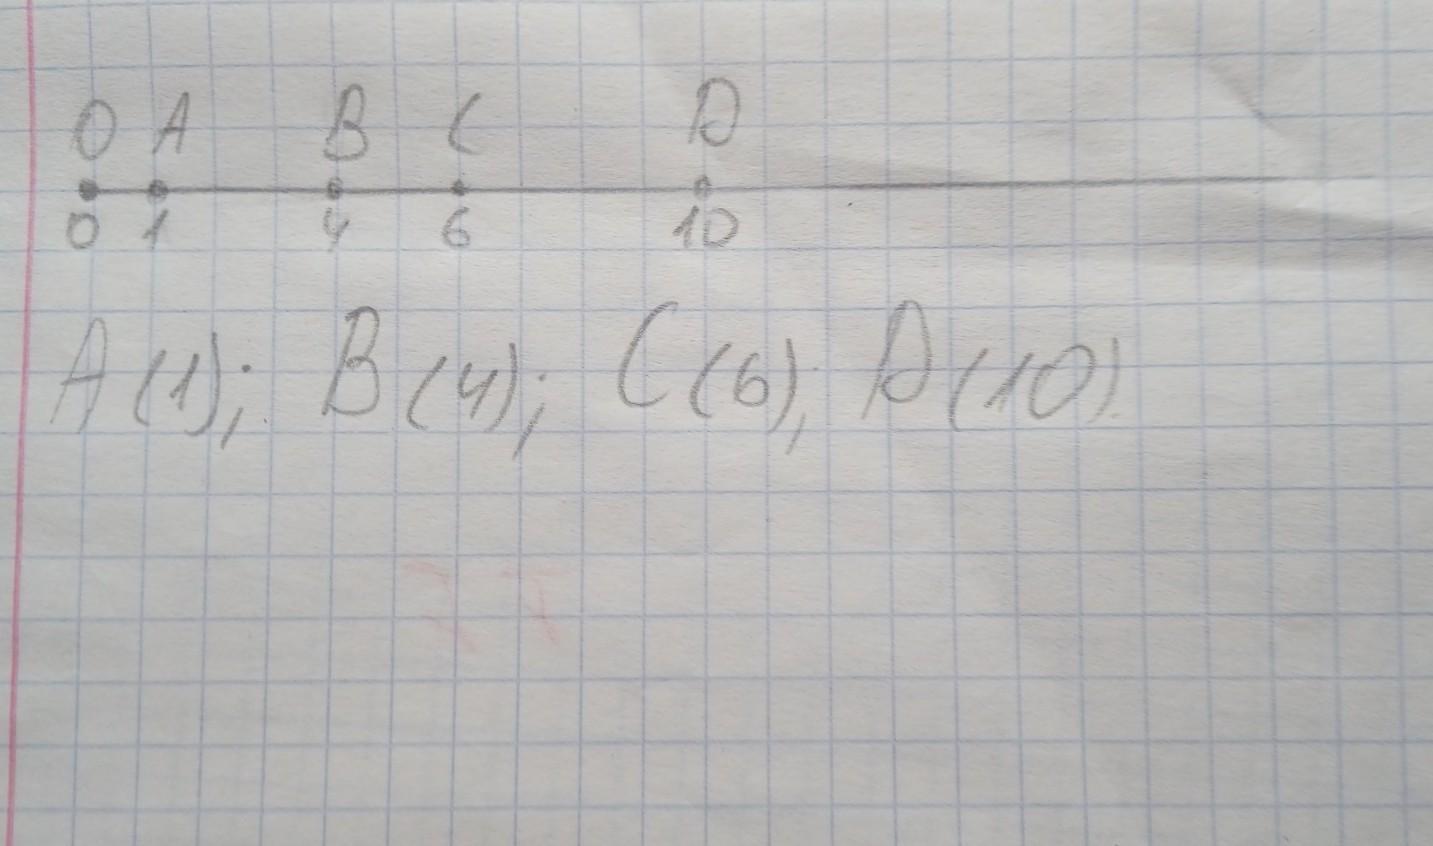 O A B C D
0 1 4 6 10
A(1); B(4); C(6); D(10)